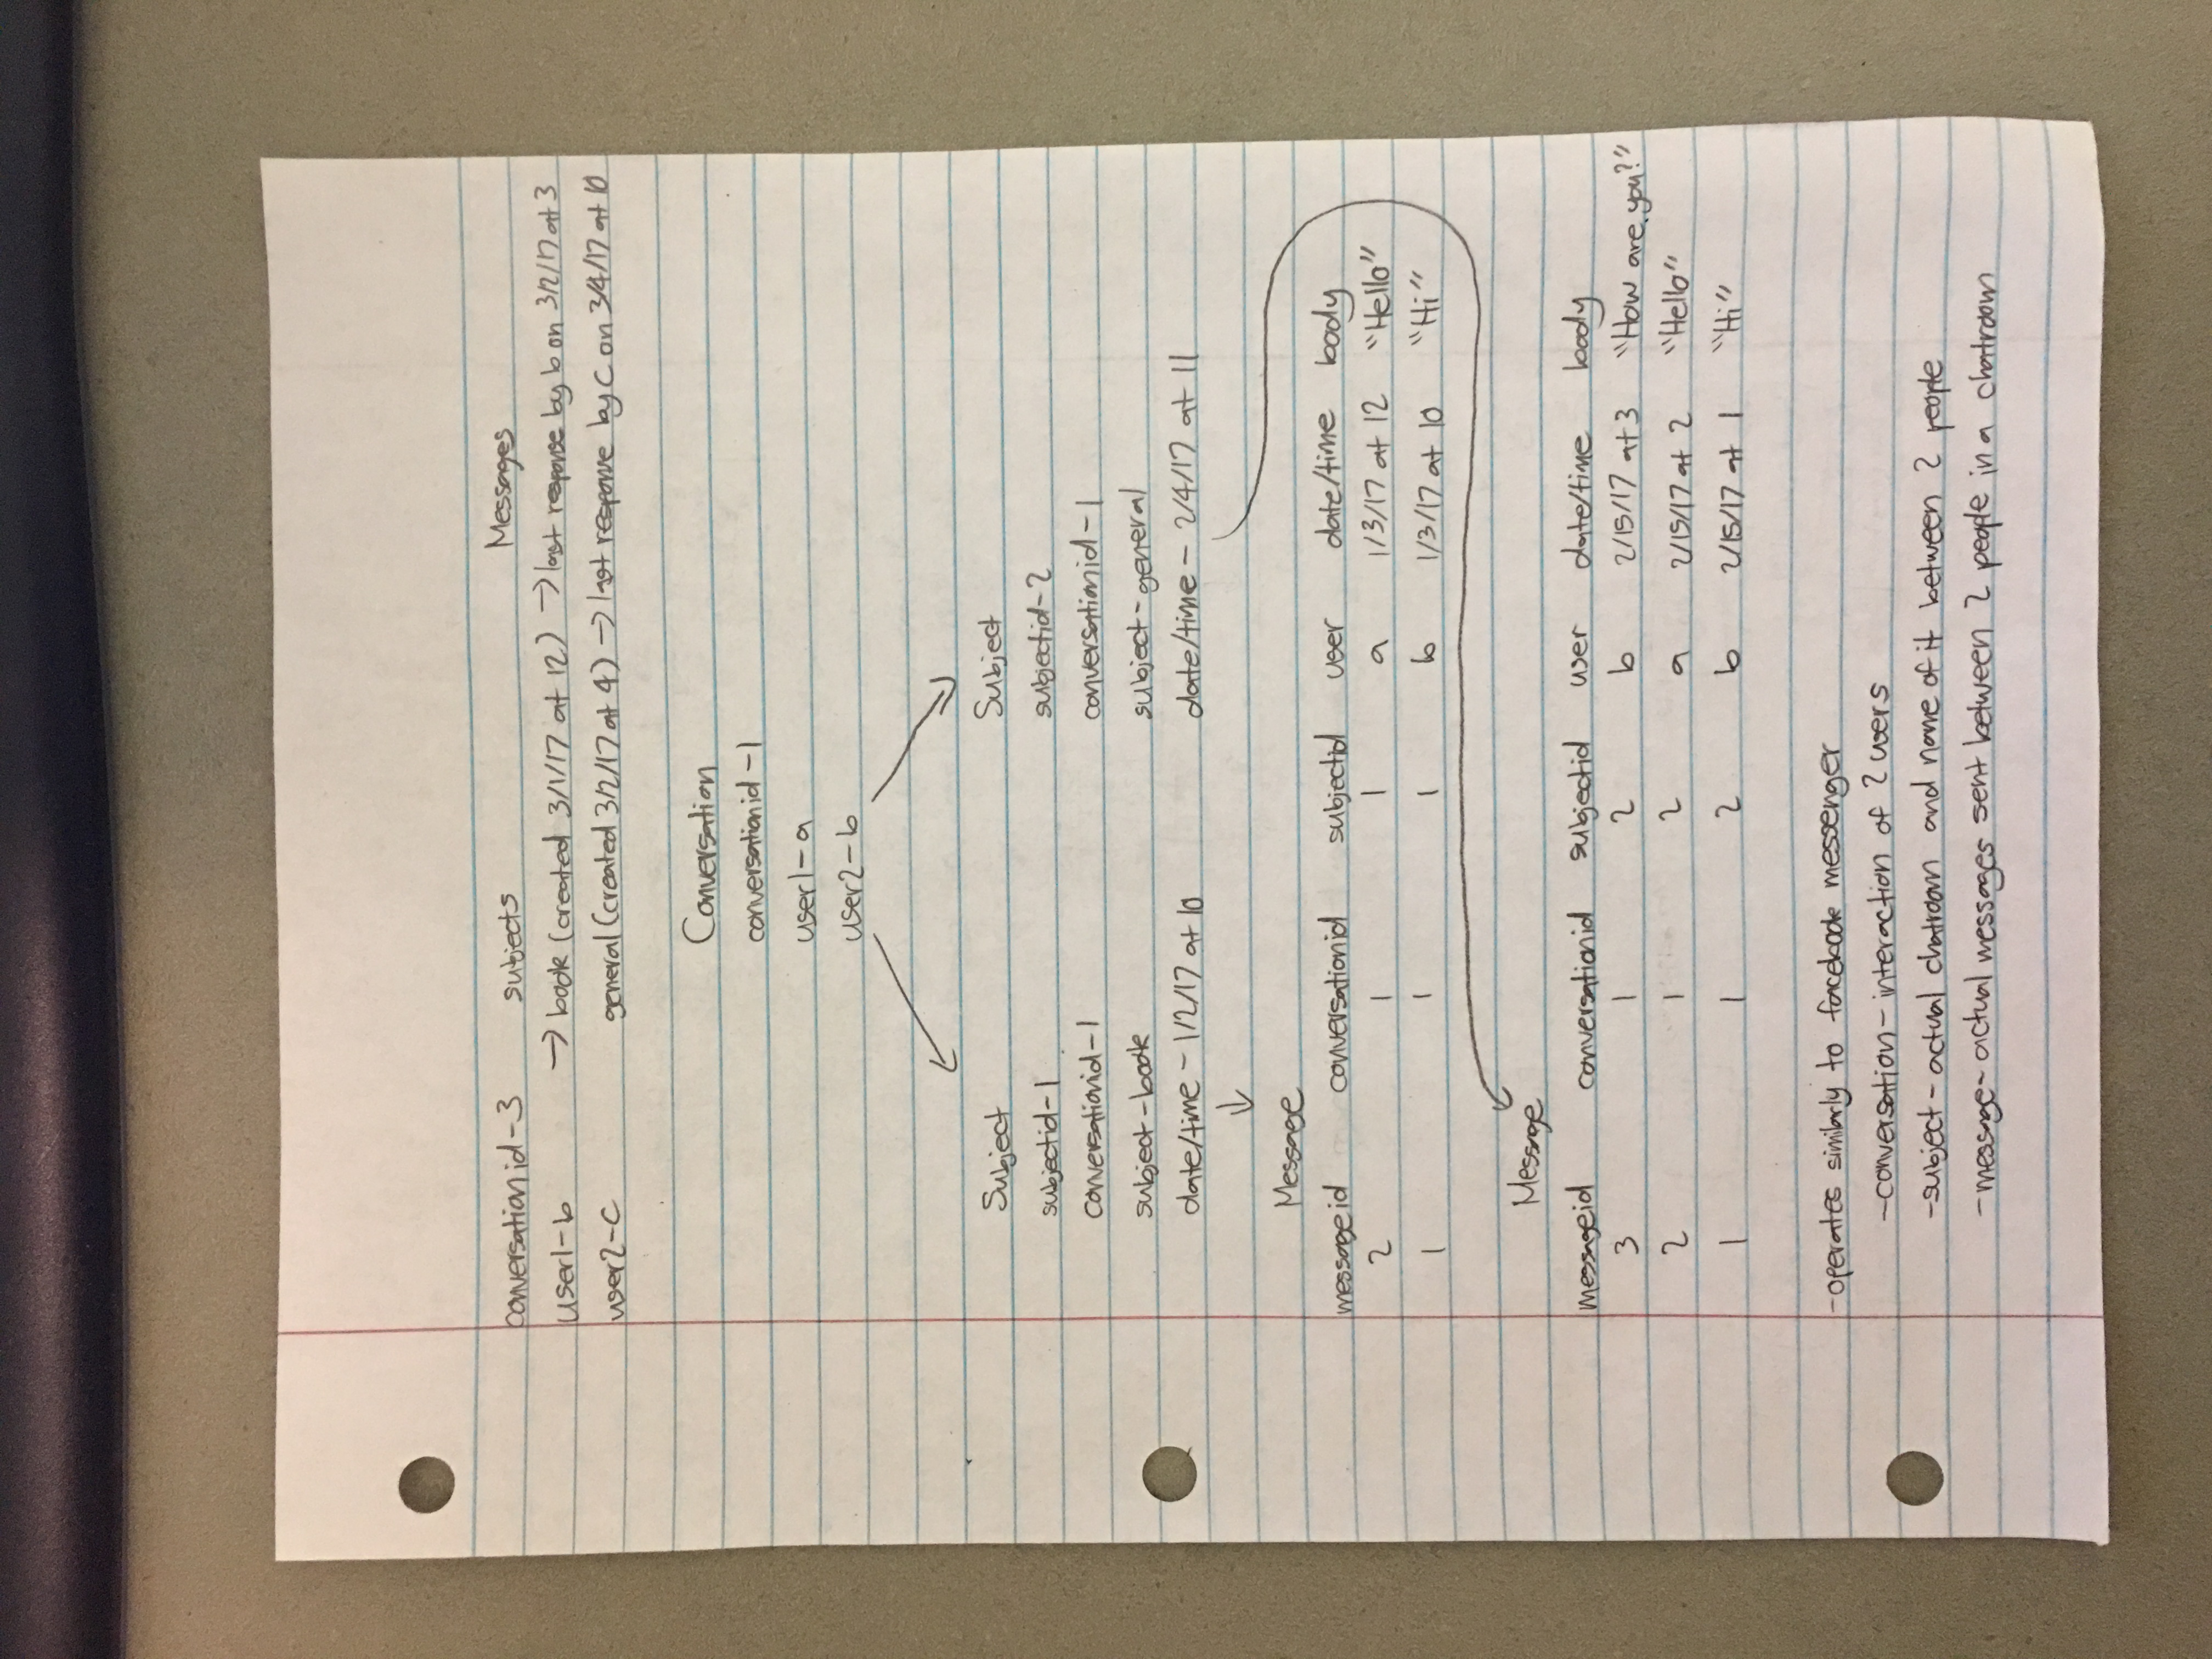 conversationid-3 subjects Messages
user1-b → book (created 3/1/17 at 12) → last response by b on 3/2/17 at 3
user2-c general (created 3/2/17 at 4) → last response by c on 3/4/17 at 10
Conversation
conversationid-1
user1-a
user2-b
Subject Subject
subjectid-1 subjectid-2
conversationid-1 conversationid-1
subject-book subject-general
date/time - 1/2/17 at 10 date/time - 2/4/17 at 11
Message
messageid conversationid subjectid user date/time body
2 1 1 a 1/3/17 at 12 "Hello"
1 1 1 b 1/3/17 at 10 "Hi"
Message
messageid conversationid subjectid user date/time body
3 1 2 b 2/15/17 at 3 "How are you?"
2 1 2 a 2/15/17 at 2 "Hello"
1 1 2 b 2/15/17 at 1 "Hi"
-operates similarly to facebook messenger
-conversation-interaction of 2 users
-subject-actual chatroom and name of it between 2 people
-message-actual messages sent between 2 people in a chatroom